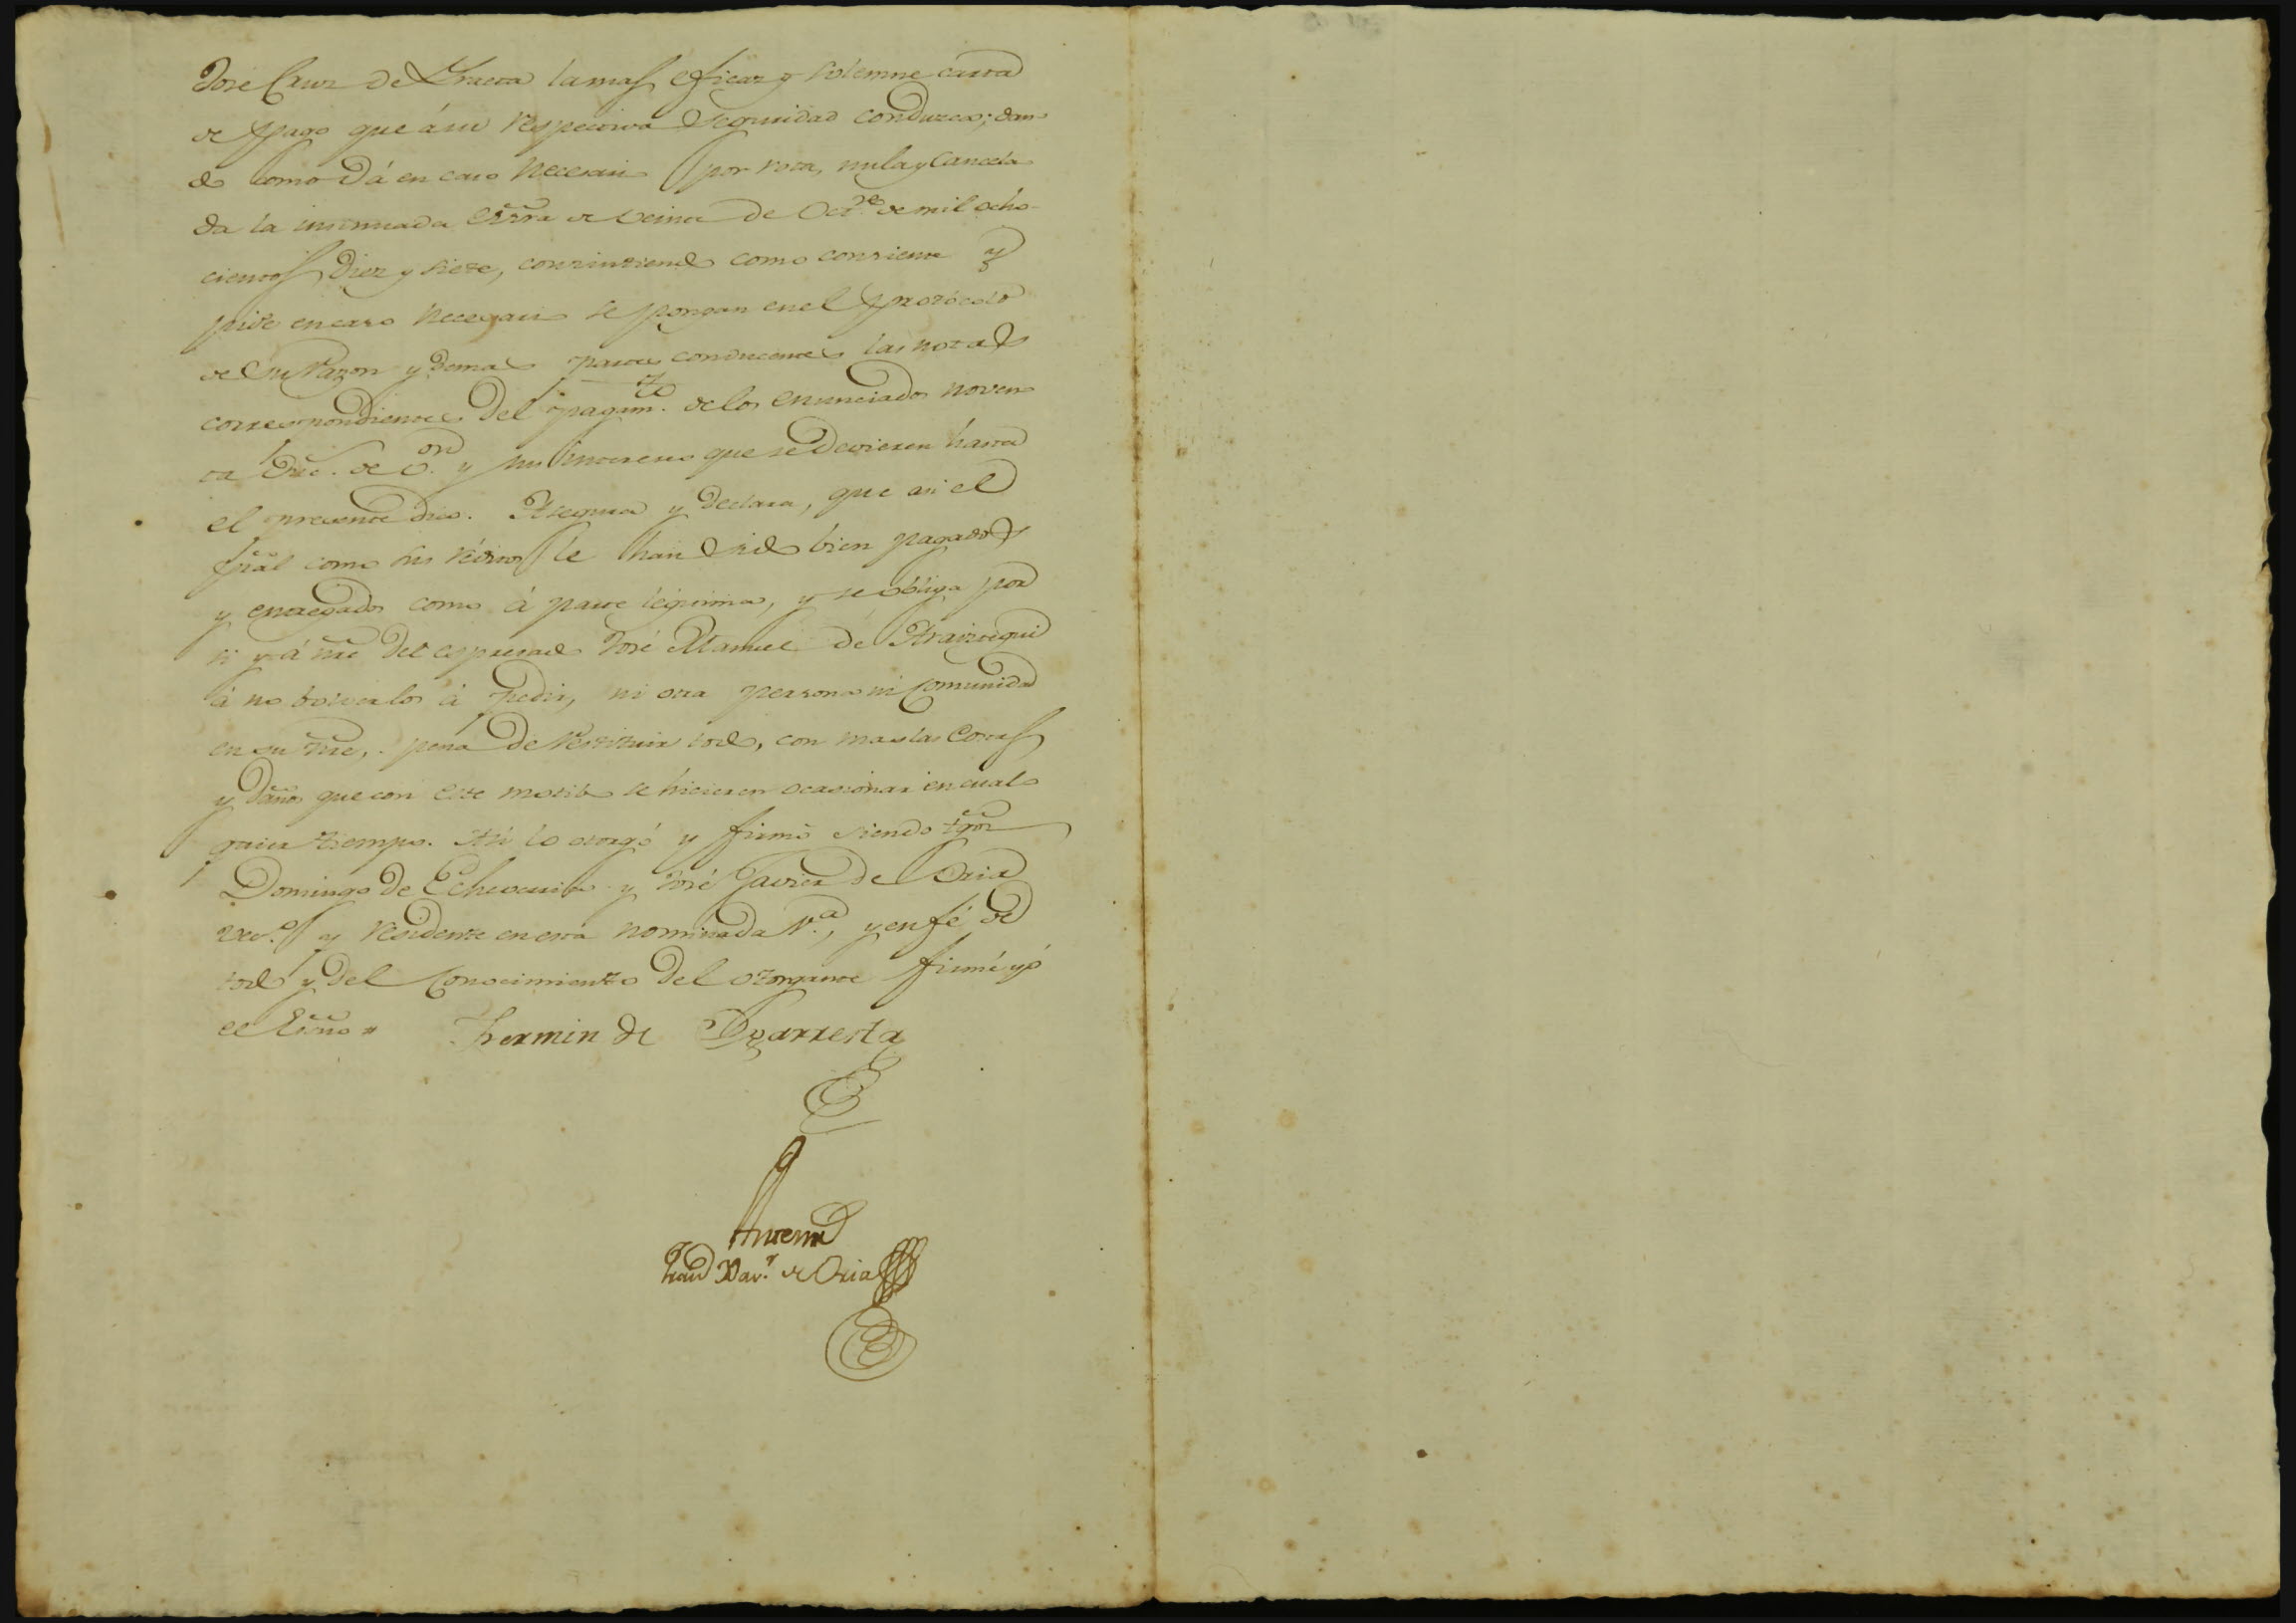 José Cruz de Yraeta la mas eficaz y solemne carta
de pago que á su respectiva seguridad conduzca; dan
do como dá en caso necesario por rota, nula y cancela
da la insinuada Essra de veinte de Oct.re de mil ocho-
cientos Diez y siete, consintiendo como consiente y
pide en caso necesario se pongan en el protócolo
de su razon y demas partes conducentes las notas
correspondientes del pagam.to de los enunciados noven
ta Duc.s de v.on y sus intereses que se devieren hasta
el presente dia. Asegura y Declara, que asi el
pñal como sus réditos le han sido bien pagados
y entregados como á parte légitima, y se obliga por
si y á nre del espresado José Manuel de
á no bolverlos á pedir, ni otra persona ni Comunidad
en su nre, pena de restituir todo, con mas las Costas
y daños que con este motibo se hicieren ocasionar en cual
quier tiempo. Asi lo otorgó y firmó siendo tgos
Domingo de Echeverria y José Javier de Oria
vec.s y residente en esta nominada V.a, y en fé de
todo y del Conocimiento del otorgante firmé yo
el Essño =   Fermin de Ygarresta
Antemi
Fran.co Xav.r de Oria